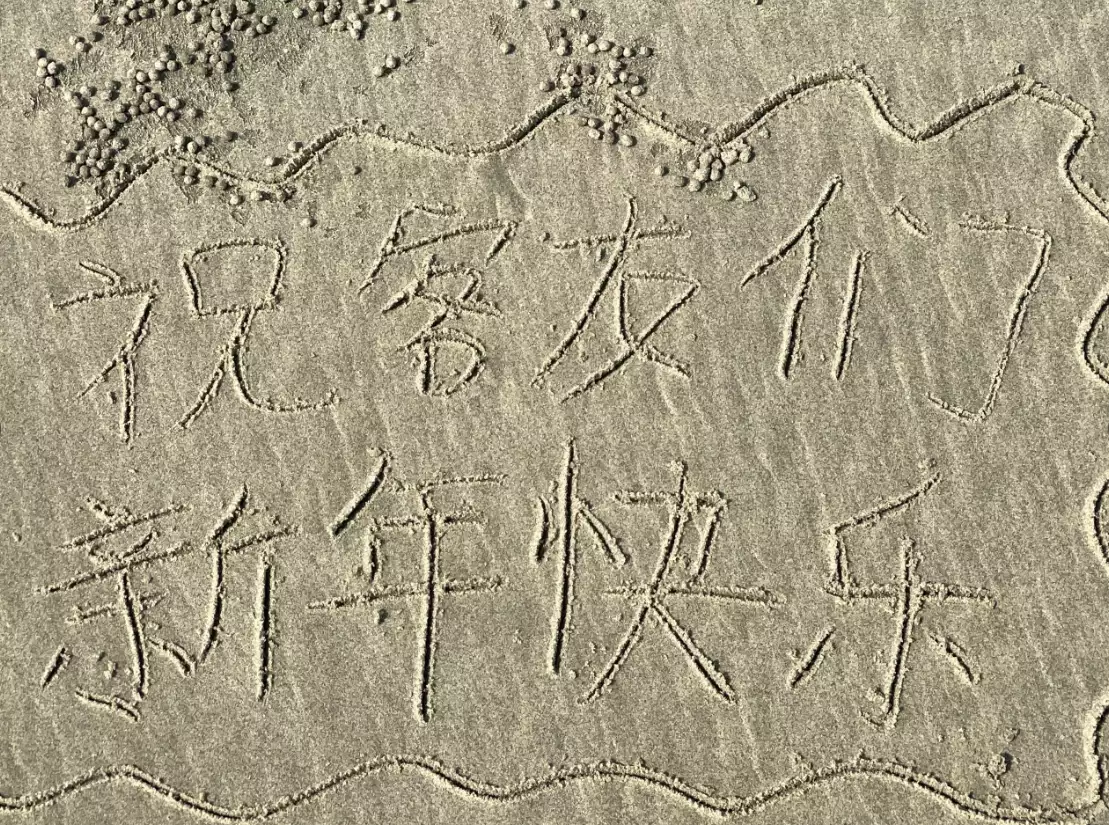 祝客友们
新年快乐